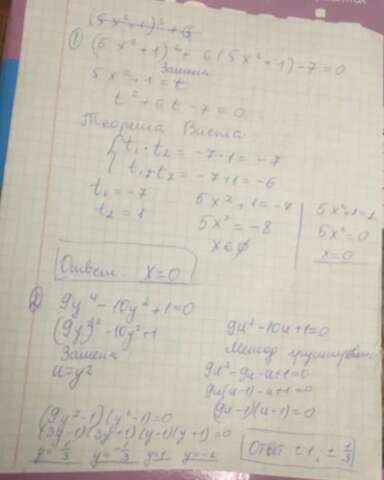 (5x²+1)²+6
① (5x²+1)²+6(5x²+1)-7=0
Замена
5x²+1=t
t²+6t-7=0
Теорема Виета
t₁·t₂=-7·1=-7
t₁+t₂=-7+1=-6
t₁=-7
t₂=1
5x²+1=-7
5x²=-8
x∈∅
5x²+1=1
5x²=0
x=0
Ответ. x=0
② 9y⁴-10y²+1=0
(9y²)²-10y²+1
Замена
u=y²
9u²-10u+1=0
Метод группировки
9u²-9u-u+1=0
9u(u-1)-u+1=0
(9u-1)(u-1)=0
(9y²-1)(y²-1)=0
(3y-1)(3y+1)(y-1)(y+1)=0
y=1/3 y=-1/3 y=1 y=-1
Ответ ±1, ±1/3